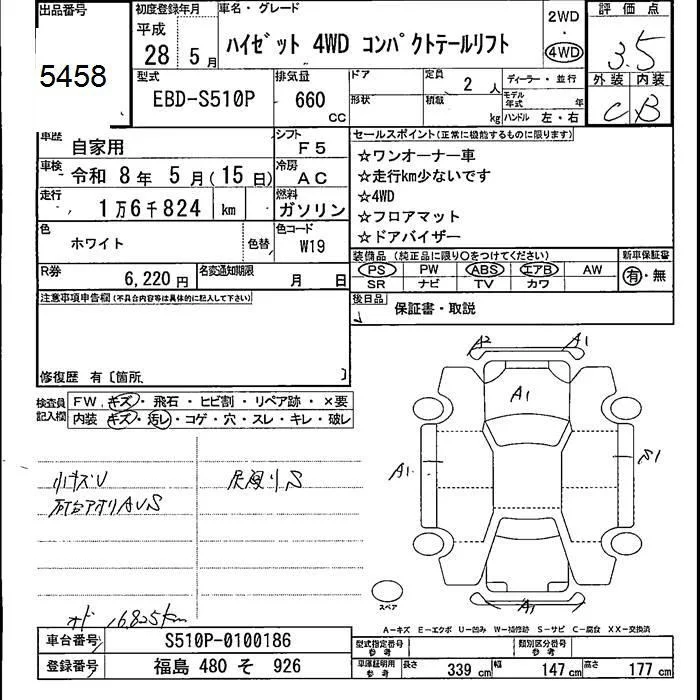 出品番号
5458
初度登録年月
平成
28 5月
車名・グレード
ハイゼット 4WD コンパクトテールリフト
2WD
・
4WD
評価点
3.5
外装 内装
C B
型式
EBD-S510P
排気量
660
CC
ドア
形状
定員
2 人
積載
kg
ディーラー・並行
モデル年式 年
ハンドル 左・右
車歴
自家用
シフト
F5
車検
令和 8年 5月(15日)
冷房
AC
走行
1万6千824 km
燃料
ガソリン
色
ホワイト
色替
色コード
W19
R券
6,220円
名変通知期限
月 日
セールスポイント(正常に機能するものに限ります)
☆ワンオーナー車
☆走行km少ないです
☆4WD
☆フロアマット
☆ドアバイザー
装備品 (純正品に限り○をつけてください)
PS PW ABS エアB AW
SR ナビ TV カワ
新車保証書
有・無
後日品
保証書・取説
注意事項申告欄(不具合内容等は具体的に記入して下さい)
修復歴 有〔箇所 〕
検査員記入欄
FW、キズ・飛石・ヒビ割・リペア跡・×要
内装 キズ・汚レ・コゲ・穴・スレ・キレ・破レ
小キズU
荷台アオリAUS
オド 16825km
A2 A1
A1
A1
S1
A1
スペア
A-キズ E-エクボ U-凹み W-補修跡 S-サビ C-腐食 XX-交換済
車台番号
S510P-0100186
登録番号
福島 480 そ 926
型式指定番号
参考
類別区分番号
参考
車庫証明用
参考
長さ 339 cm 幅 147 cm 高さ 177 cm